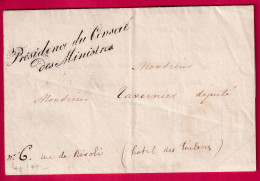 Présidence du Conseil
des Ministres
Monsieur
Monsieur Tavernier député
n° 6. rue de Rivoli (hotel des